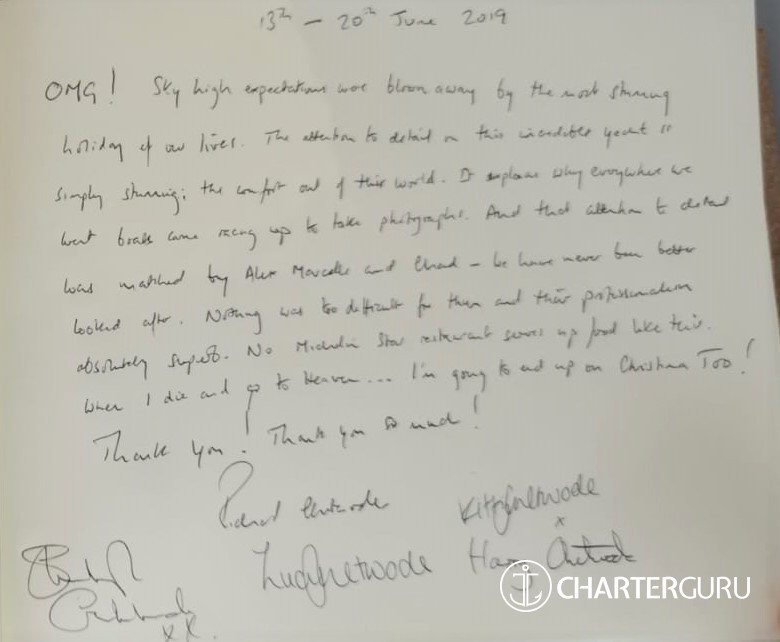 13th - 20th June 2019
OMG! Sky high expectations were blown away by the most stunning
holiday of our lives. The attention to detail on this incredible yacht is
simply stunning; the comfort out of this world. It explains why everywhere we
went boats came racing up to take photographs. And that attention to detail
was matched by Alex Marcelle and Chad - we have never been better
looked after. Nothing was too difficult for them and their professionalism
absolutely superb. No Michelin Star restaurant serves up food like this.
When I die and go to Heaven... I'm going to end up on Christina Too!
Thank you! Thank you so much!
Richard Chetwode
Kitty Chetwode
x
Lucy Chetwode
Harry Chetwode
xx.
CHARTERGURU